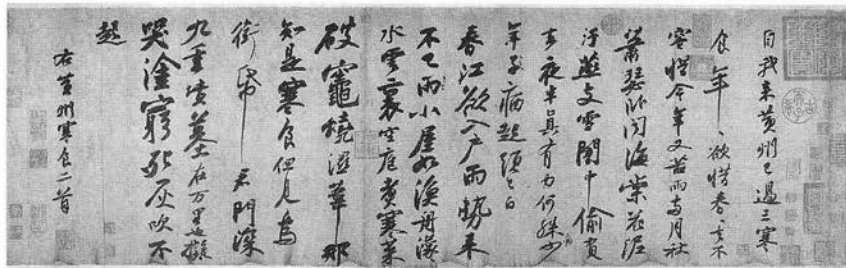 自我来黃州已過三寒
食年ヽ欲惜春ヽ去不
容惜今年又苦雨兩月秋
蕭瑟卧聞海棠花泥
汙燕支雪闇中偷負
去夜半真有力何殊少
年子病起頭已白
春江欲入戶雨勢来
不已雨小屋如漁舟濛ヽ
水雲裏空庖煑寒菜
破竈燒濕葦那
知是寒食但見烏
銜帋君門深
九重墳墓在万里也擬
哭塗窮死灰吹不
起
右黃州寒食二首